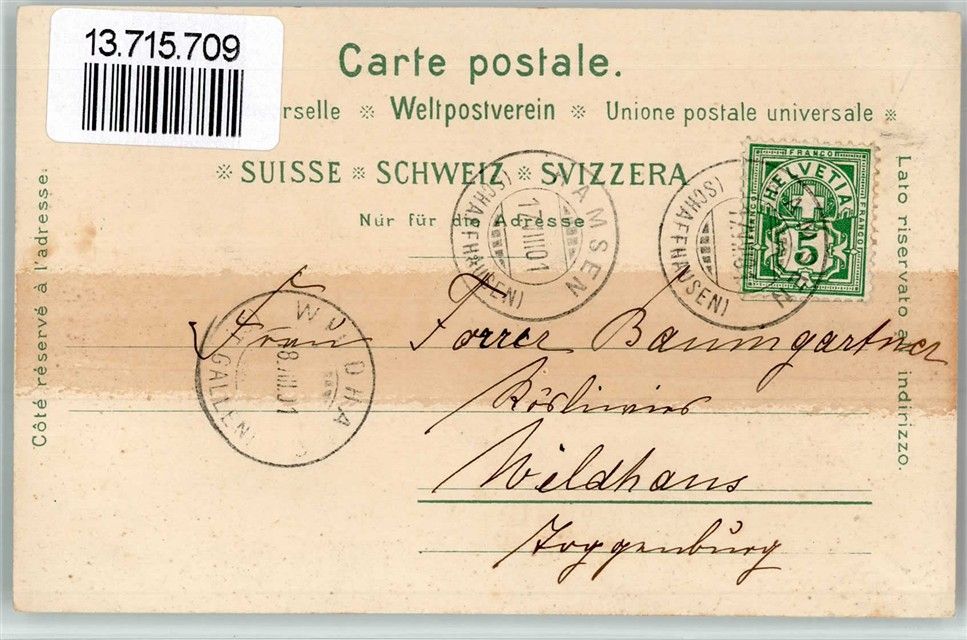 13.715.709
Carte postale.
rselle ※ Weltpostverein ※ Unione postale universale ※
※ SUISSE ※ SCHWEIZ ※ SVIZZERA
Nur für die Adresse
Côté réservé à l'adresse.
Lato riservato all' indirizzo.
FRANCO
HELVETIA
FRANCO
FRANCO
5
RAMSEN
17.VIII.01
(SCHAFFHAUSEN)
(SCHAFFHAUSEN)
WILDHA
18.VIII.01
GALLEN)
Frau Forrer Baumgartner
Wildhaus
Toggenburg